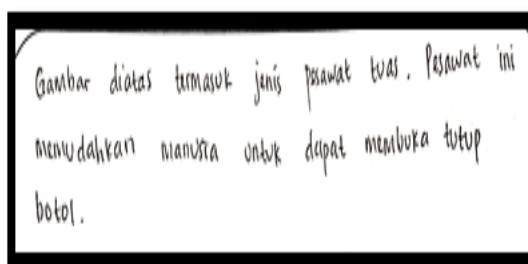 Gambar diatas termasuk jenis pesawat tuas. Pesawat ini
memudahkan manusia untuk dapat membuka tutup
botol.